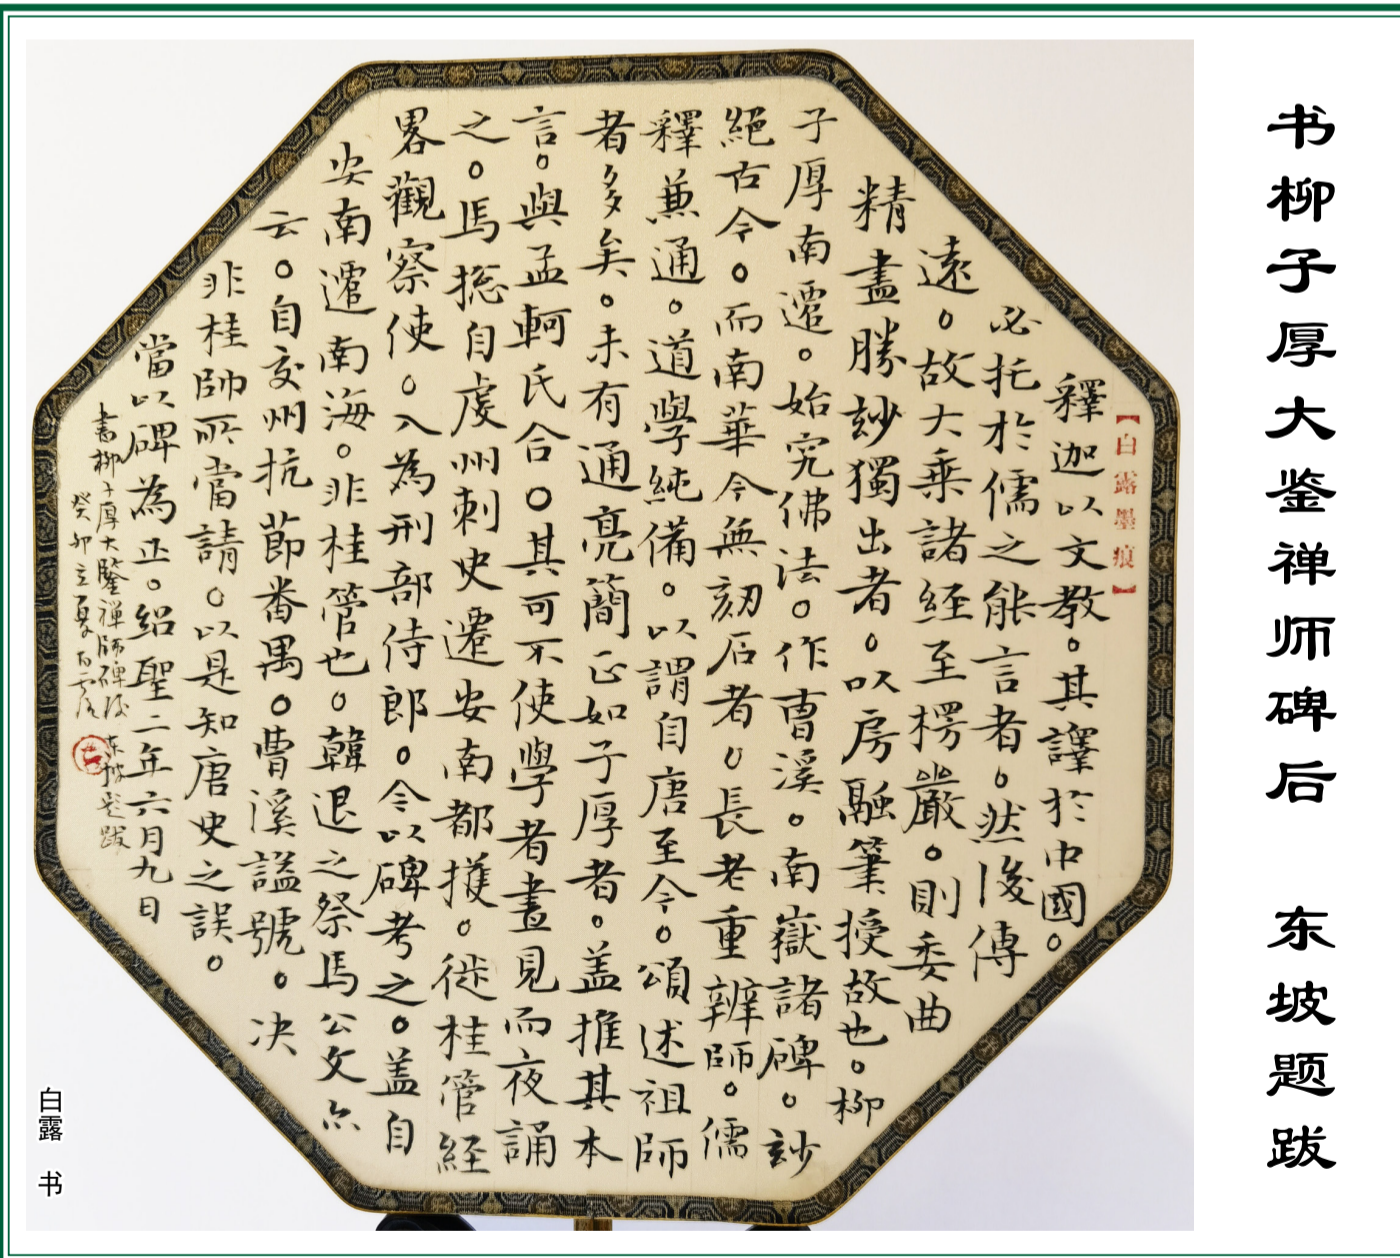 书柳子厚大鉴禅师碑后 东坡题跋
【白露墨痕】
釋迦以文教。其譯於中國。
必托於儒之能言者。然後傳
遠。故大乘諸經至楞嚴。則委曲
精盡勝玅獨出者。以房融筆授故也。柳
子厚南遷。始究佛法。作曹溪。南嶽諸碑。玅
絕古今。而南華今無刻石者。長老重辨師。儒
釋兼通。道學純備。以謂自唐至今。頌述祖師
者多矣。未有通亮簡正如子厚者。盖推其本
言。與孟軻氏合。其可不使學者晝見而夜誦
之。馬摠自虔州刺史遷安南都護。徙桂管経
畧觀察使。入為刑部侍郎。今以碑考之。盖自
安南遷南海。非桂管也。韓退之祭馬公文亦
云。自交州抗節番禺。曹溪謚號。决
非桂帥所當請。以是知唐史之誤。
當以碑為正。紹聖二年六月九日
書柳子厚大鑒禪師碑後 東坡題跋
癸卯立夏 白露
白露 书